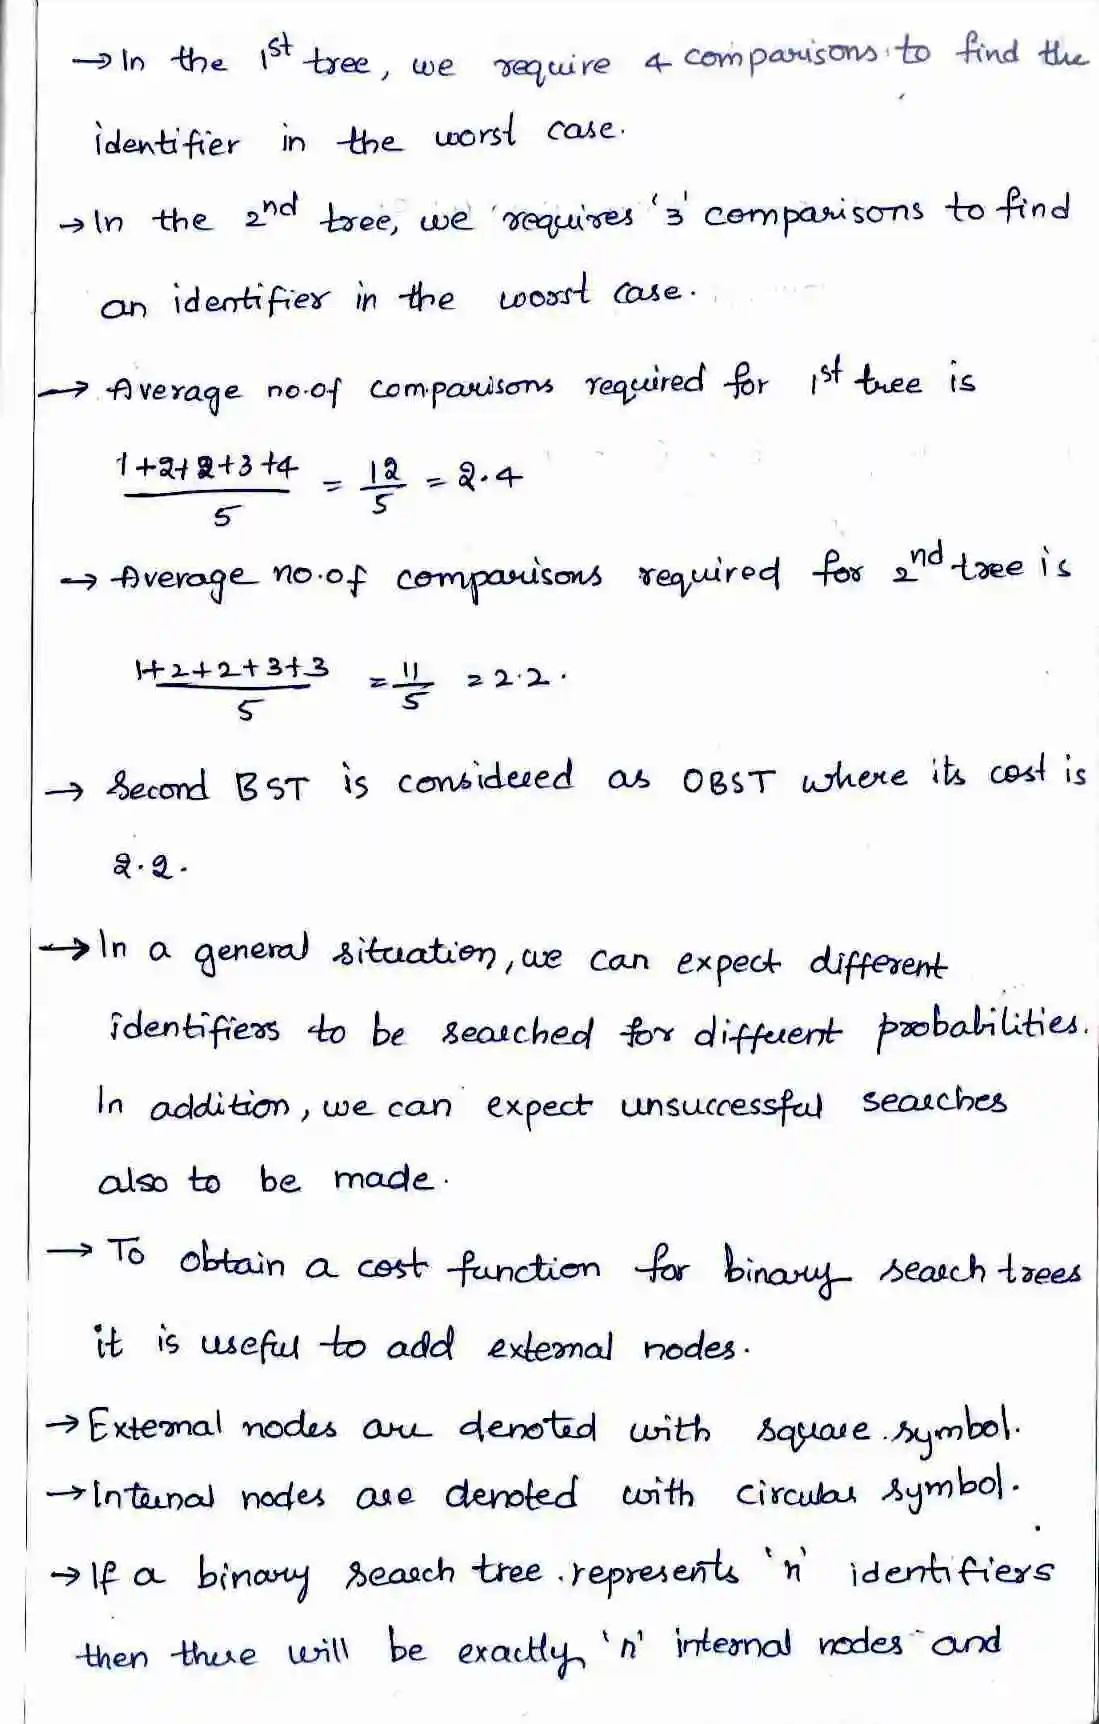 → In the 1st tree, we require 4 comparisons to find the
identifier in the worst case.
→ In the 2nd tree, we requires '3' comparisons to find
an identifier in the worst case.
→ Average no.of comparisons required for 1st tree is
1+2+2+3+4 / 5 = 12/5 = 2.4
→ Average no.of comparisons required for 2nd tree is
1+2+2+3+3 / 5 = 11/5 = 2.2.
→ Second BST is considered as OBST where its cost is
2.2.
→ In a general situation, we can expect different
identifiers to be searched for different probabilities.
In addition, we can expect unsuccessful searches
also to be made.
→ To obtain a cost function for binary search trees
it is useful to add external nodes.
→ External nodes are denoted with square symbol.
→ Internal nodes are denoted with circular symbol.
→ If a binary search tree represents 'n' identifiers
then there will be exactly 'n' internal nodes and